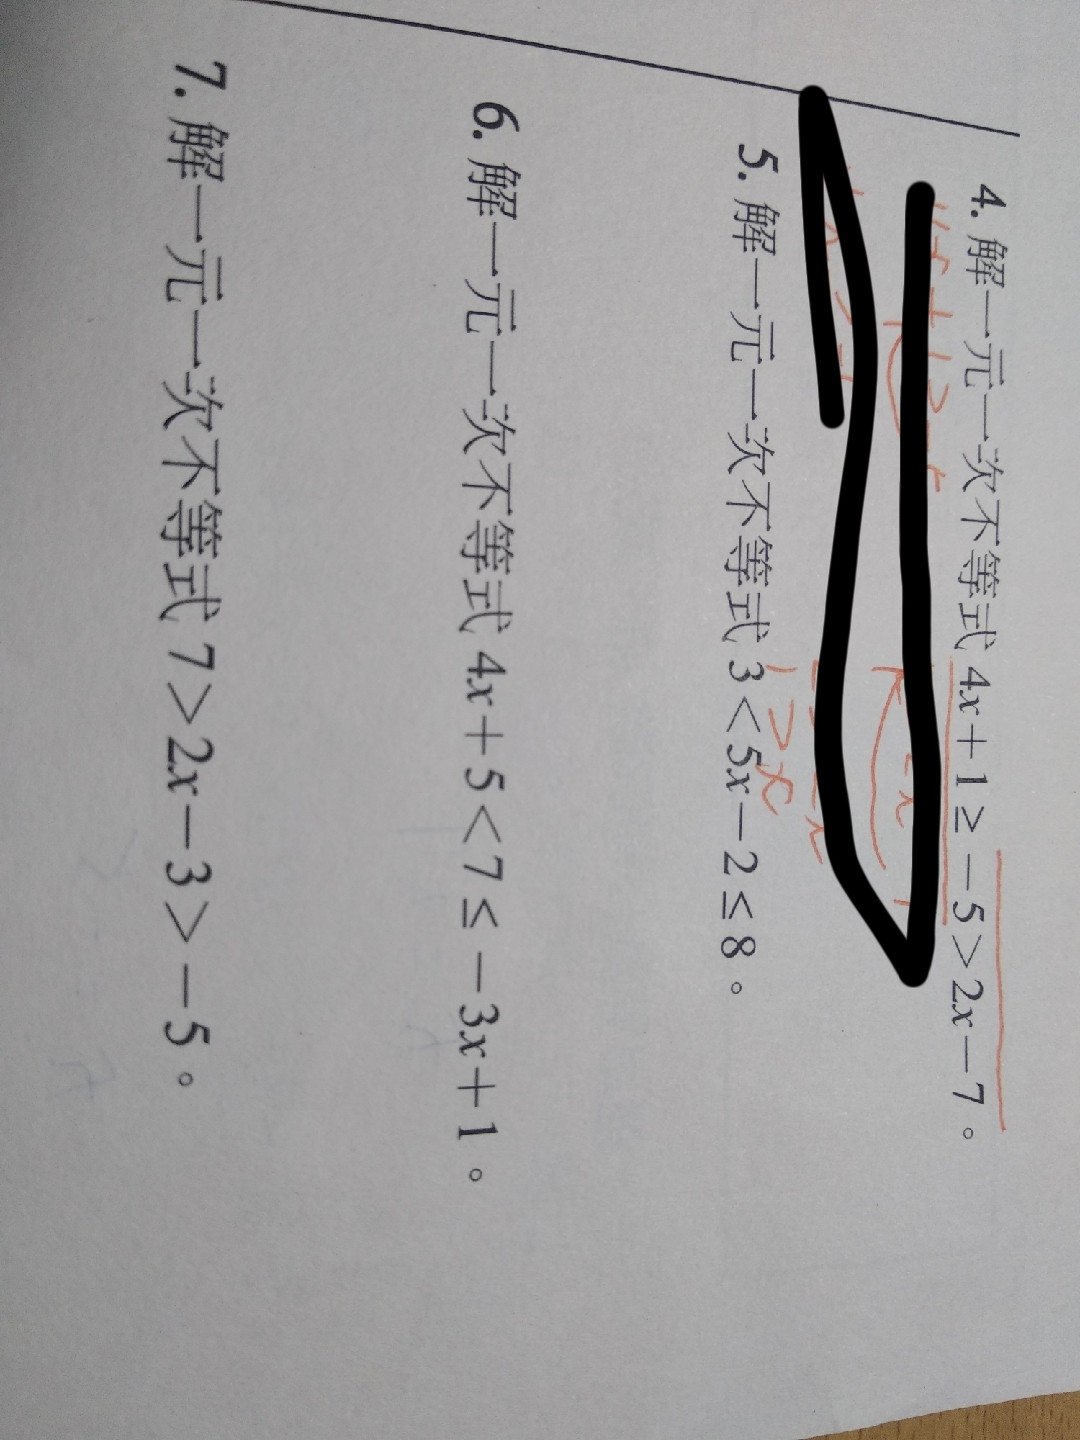 4. 解一元一次不等式 4x+1≥−5>2x−7。
5. 解一元一次不等式 3<5x−2≤8。
6. 解一元一次不等式 4x+5<7≤−3x+1。
7. 解一元一次不等式 7>2x−3>−5。